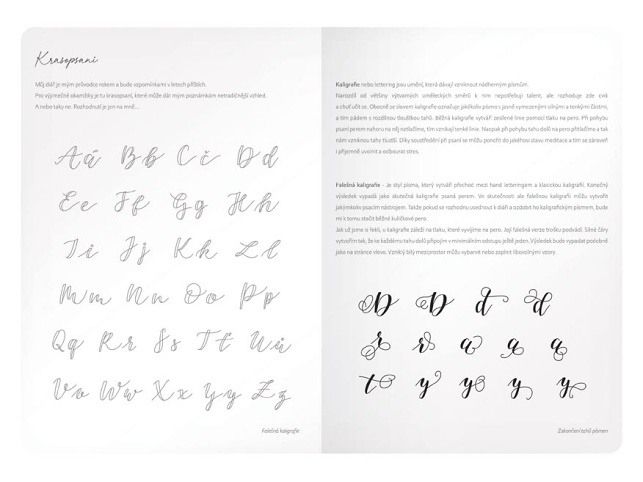 Krasopsaní
Můj diář je mým průvodce rokem a bude vzpomínkami v letech příštích.
Pro výjimečné okamžiky je tu krasopsaní, které může dát mým poznámkám netradiční vzhled.
A nebo taky ne. Rozhodnutí je jen na mně...
Aá Bb Cč Dd
Ee Ff Gg Hh
Ii Jj Kk Ll
Mm Nn Oo Pp
Qq Rr Ss Tť Uů
Vv Ww Xx Yy Zz
Falešná kaligrafie
Kaligrafie nebo lettering jsou umění, která dávají vzniknout nádherným písmům.
Narozdíl od většiny výtvarných uměleckých směrů k nim nepotřebuji talent, ale rozhoduje zde cvik
a chuť učit se. Obecně ze slovem kaligrafie označuje jakékoliv písmo s jasně vymezenými silnými a tenkými částmi,
a tím pádem s rozdílnou tloušťkou tahů. Běžná kaligrafie vytváří zesílené linie pomocí tlaku na pero. Při pohybu
psaní perem nahoru na něj netlačíme, tím vznikají tenké linie. Naopak při pohybu tahů dolů na pero přitlačíme a tak
nám vzniknou tahy tlustší. Díky soustředění při psaní se můžu ponořit do jakéhosi stavu meditace a tím se zároveň
i příjemně uvolnit a odbourat stres.
Falešná kaligrafie - Je styl písma, který vytváří přechod mezi hand letteringem a klasickou kaligrafií. Konečný
výsledek vypadá jako skutečná kaligrafie psaná perem. Ve skutečnosti ale falešnou kaligrafii můžu vytvořit
jakýmkoliv psacím nástrojem. Takže pokud se rozhodnu usednout k diáři a ozdobit ho kaligrafickým písmem, bude
mi k tomu stačit běžné kuličkové pero.
Jak už jsme si řekli, u kaligrafie záleží na tlaku, který vyvineme na pero. Její falešná verze trošku podvádí. Silné čáry
vytvořím tak, že ke každému tahu dolů připojím v minimálním odstupu ještě jeden. Výsledek bude vypadat podobně
jako na stránce vlevo. Vzniklý bílý meziprostor můžu vybarvit nebo zaplnit libovolnými vzory.
D D d d
r r a a a
t y y y y
Zakončení tahů písmen